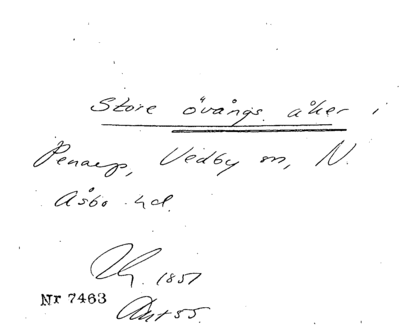 Store övångs åker i
Penarp, Vedby sn, N.
Åsbo hd.
1851
Nr 7463
Akt 55